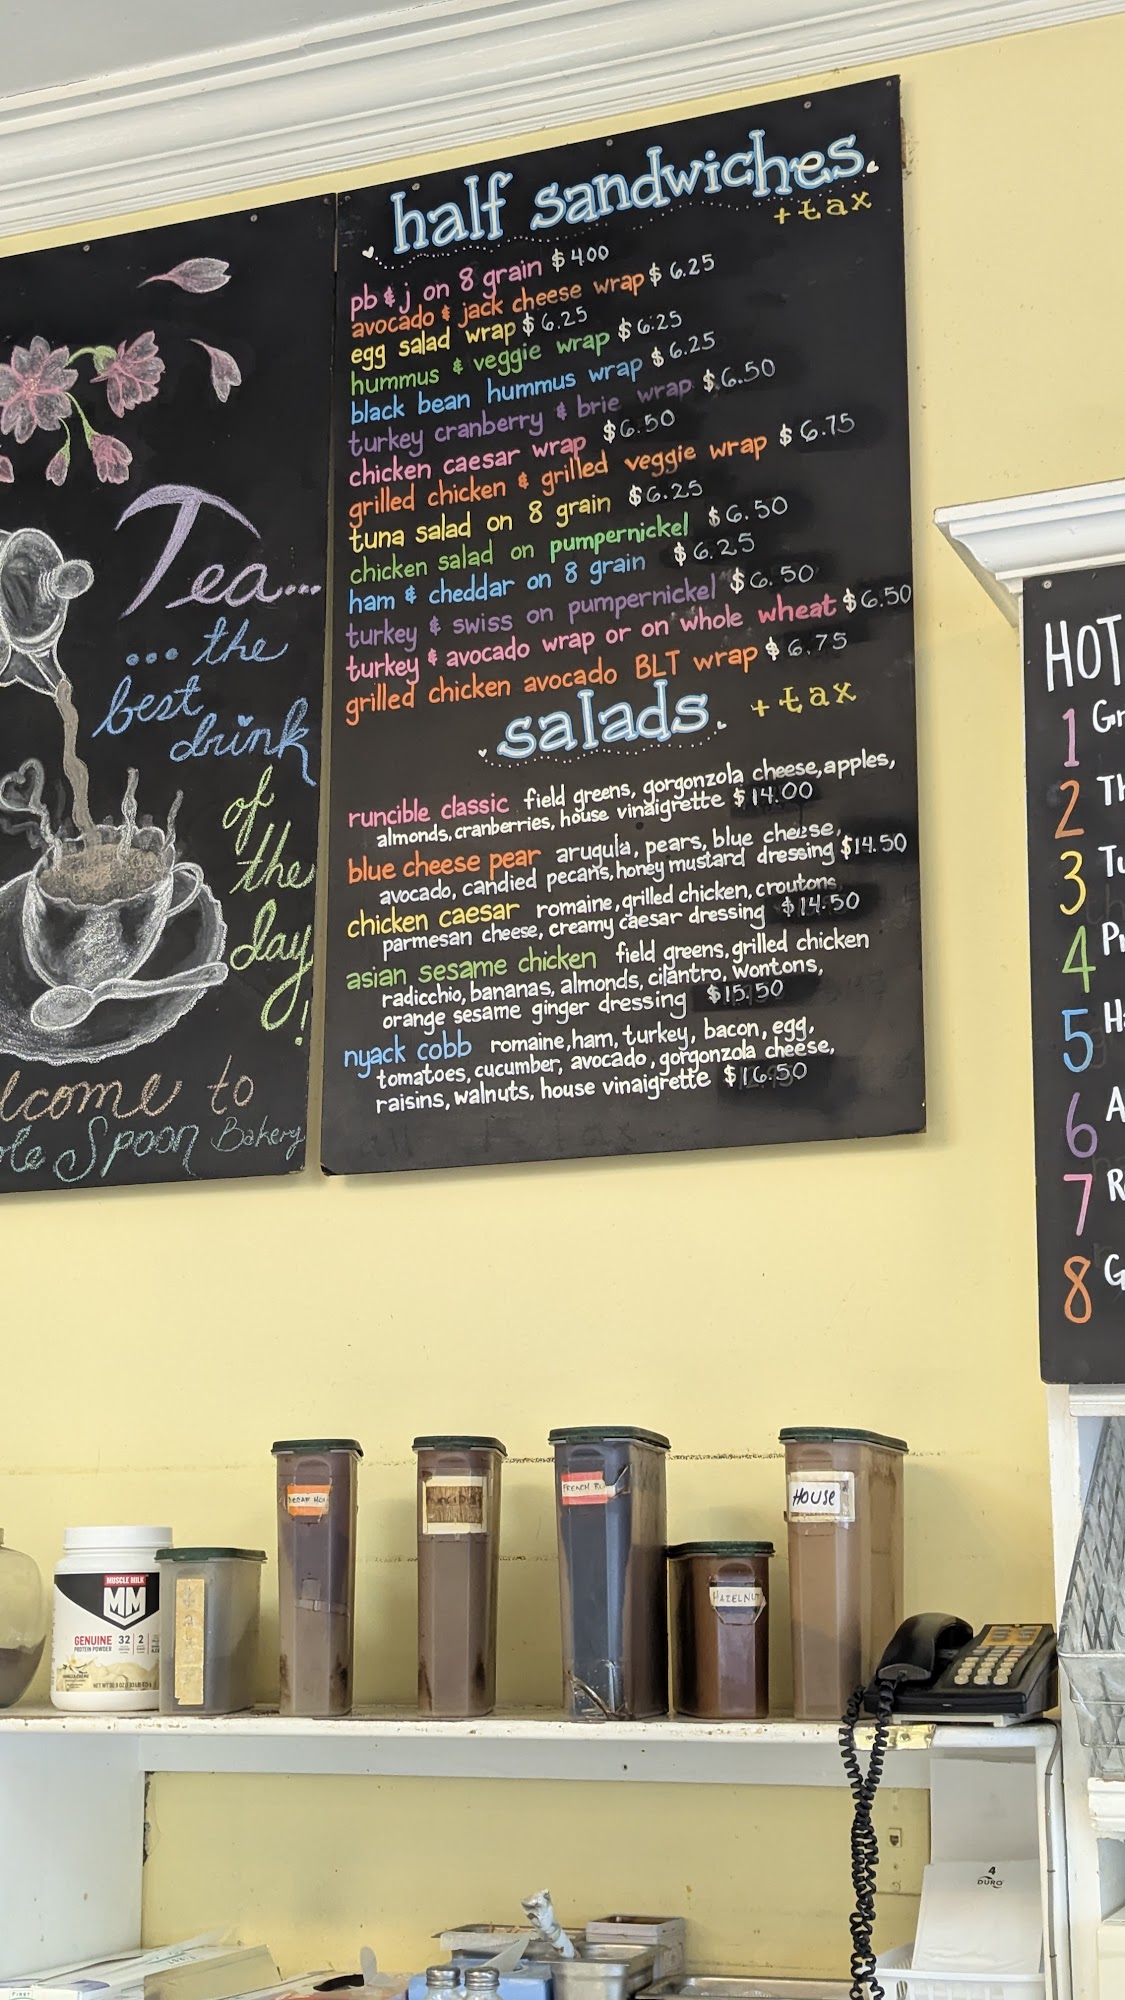 half sandwiches
+ tax
pb & j on 8 grain $400
avocado & jack cheese wrap $ 6.25
egg salad wrap $ 6.25
hummus & veggie wrap $ 6.25
black bean hummus wrap $ 6.25
turkey cranberry & brie wrap $6.50
chicken caesar wrap $6.50
grilled chicken & grilled veggie wrap $ 6.75
tuna salad on 8 grain $6.25
chicken salad on pumpernickel $6.50
ham & cheddar on 8 grain $6.25
turkey & swiss on pumpernickel $6.50
turkey & avocado wrap or on whole wheat $6.50
grilled chicken avocado BLT wrap $ 6.75
salads
+ tax
runcible classic field greens, gorgonzola cheese, apples,
almonds, cranberries, house vinaigrette $14.00
blue cheese pear arugula, pears, blue cheese,
avocado, candied pecans, honey mustard dressing $14.50
chicken caesar romaine, grilled chicken, croutons
parmesan cheese, creamy caesar dressing $14.50
asian sesame chicken field greens, grilled chicken
radicchio, bananas, almonds, cilantro, wontons,
orange sesame ginger dressing $15.50
nyack cobb romaine, ham, turkey, bacon, egg,
tomatoes, cucumber, avocado, gorgonzola cheese,
raisins, walnuts, house vinaigrette $16.50
Tea...
... the
best
drink
of
the
day
!
lcome to
Spoon Bakery
HOT
1
2
3
4
5
6
7
8
MUSCLE MILK
MM
GENUINE
PROTEIN POWDER
32
2
HOUSE
HAZELNUT
FRENCH
4
DURO